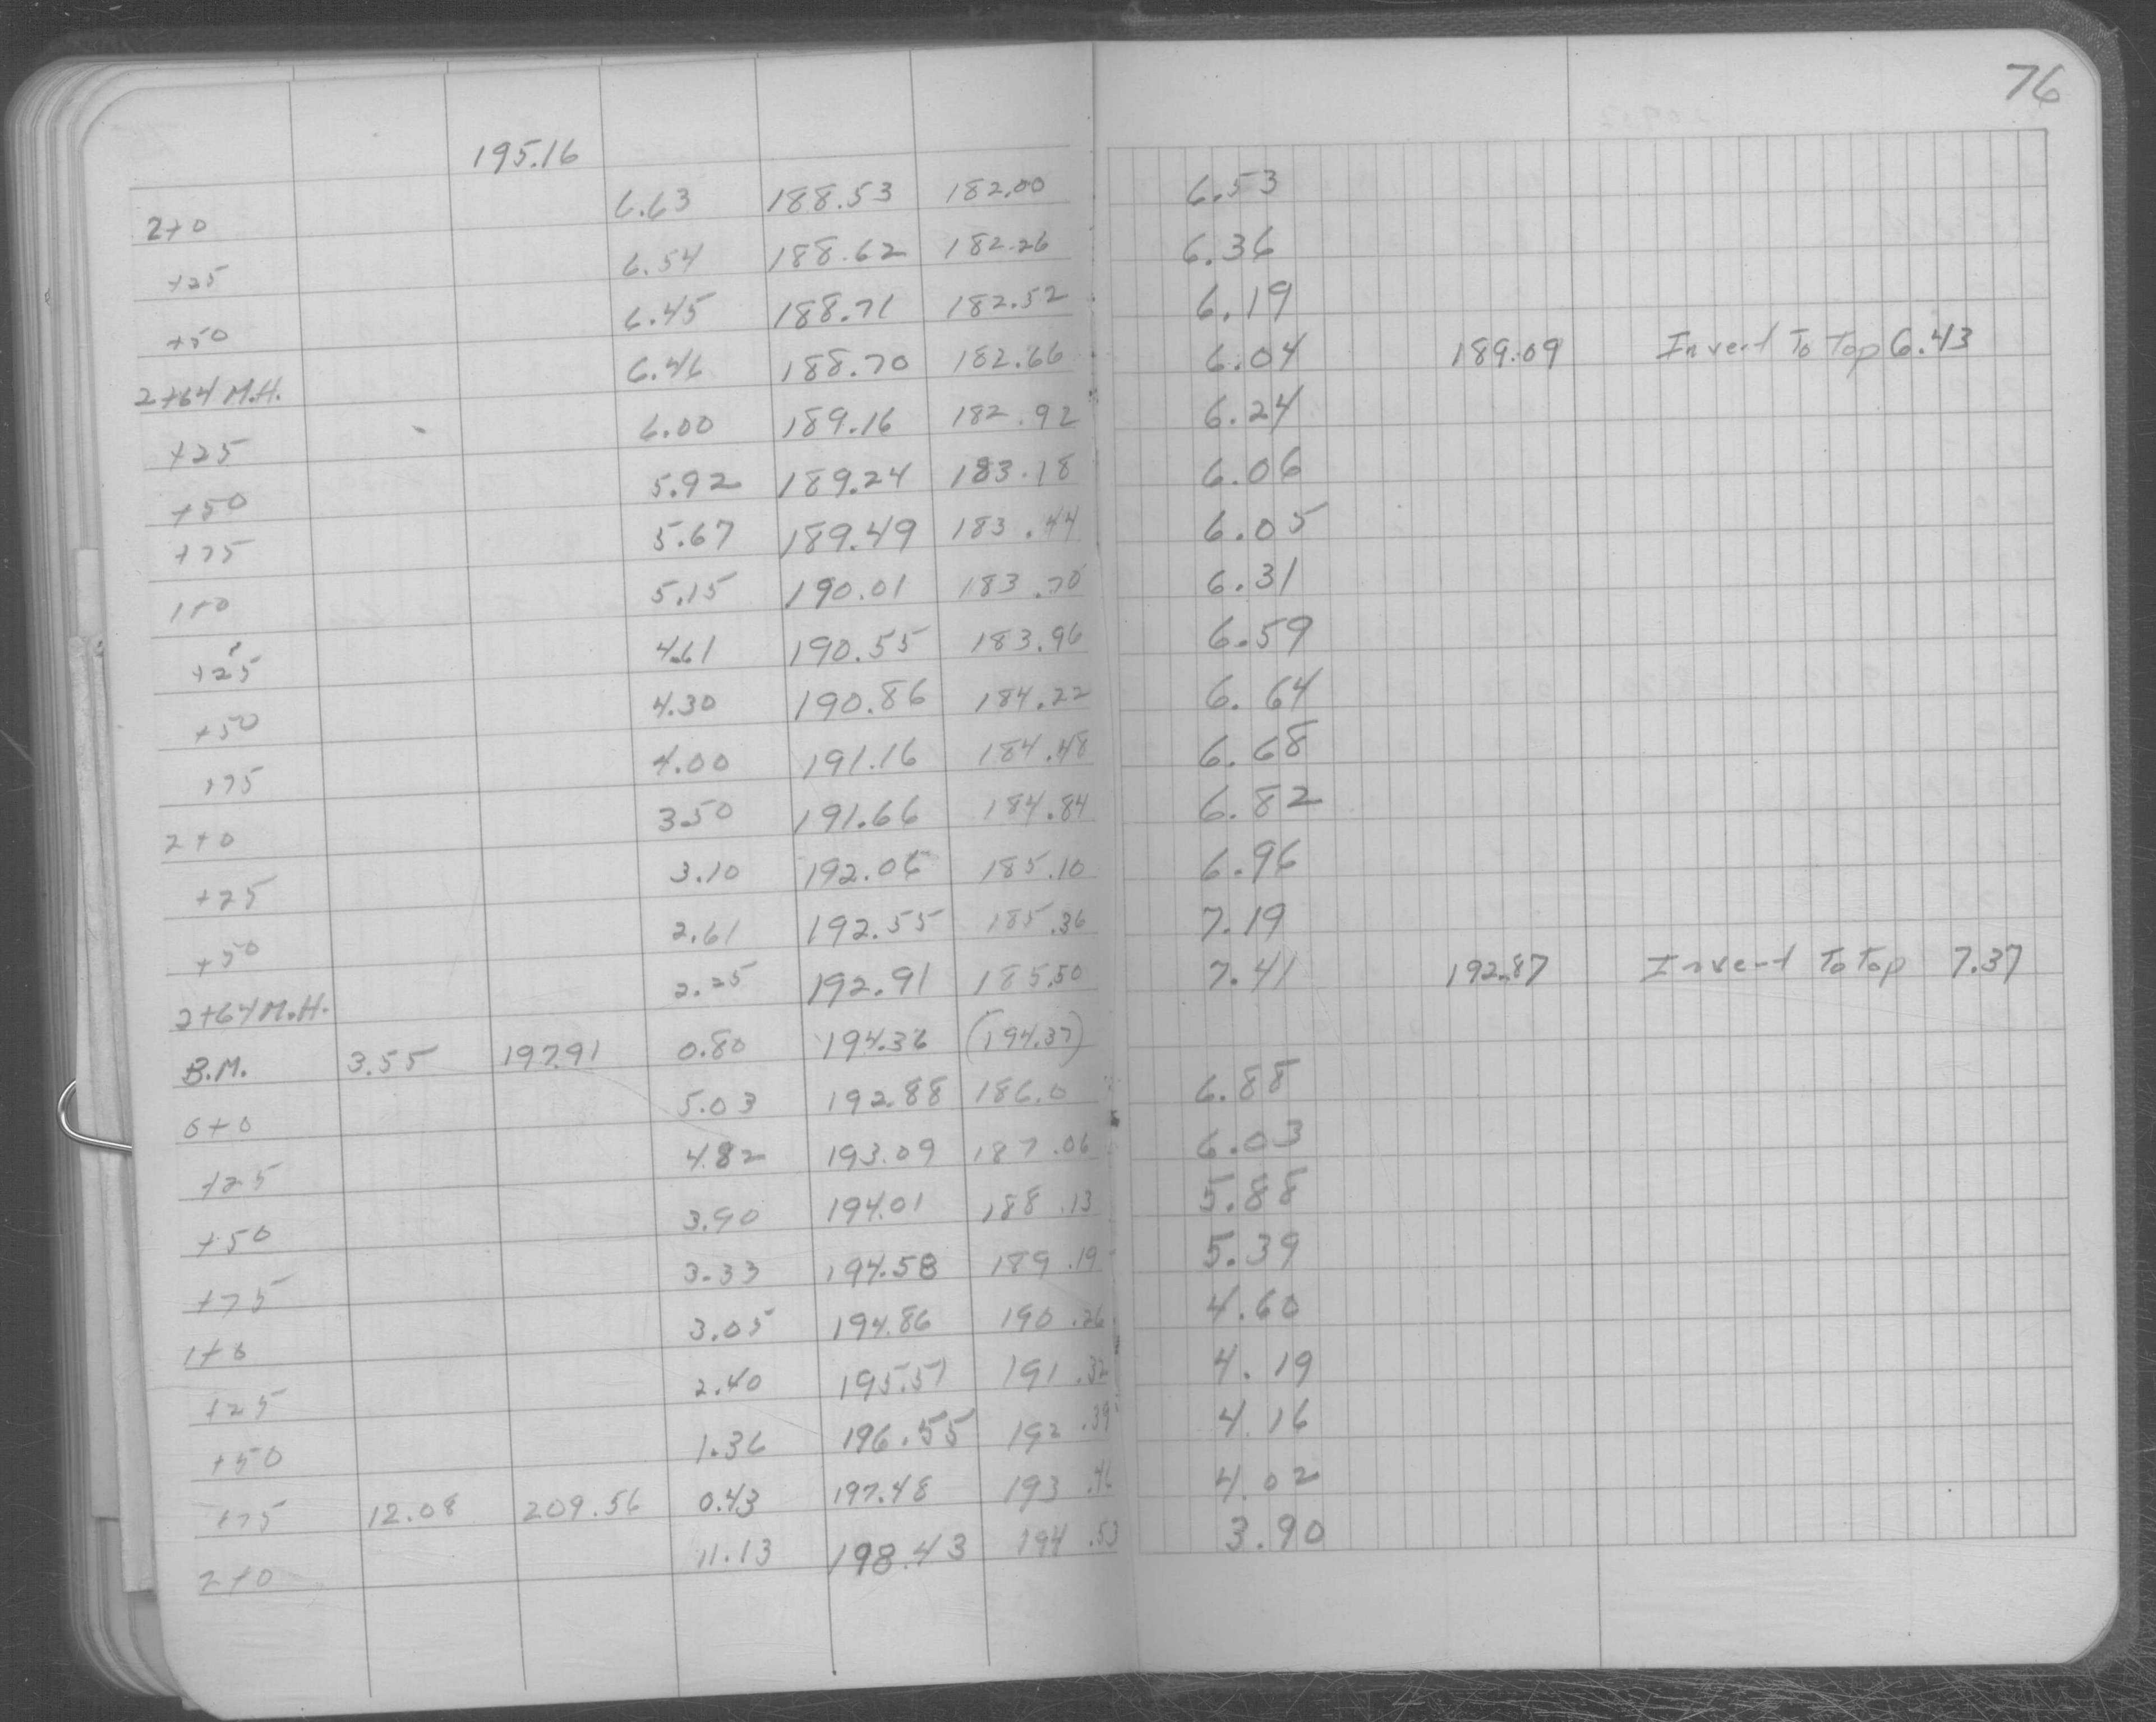 76
195.16
2+0 6.63 188.53 182.00 6.53
+25 6.54 188.62 182.26 6.36
+50 6.45 188.71 182.52 6.19
2+64 M.H. 6.46 188.70 182.66 6.04 189.09 Invert To Top 6.43
+25 6.00 189.16 182.92 6.24
+50 5.92 189.24 183.18 6.06
+75 5.67 189.49 183.44 6.05
1+0 5.15 190.01 183.70 6.31
+25 4.61 190.55 183.96 6.59
+50 4.30 190.86 184.22 6.64
+75 4.00 191.16 184.48 6.68
2+0 3.50 191.66 184.84 6.82
+25 3.10 192.06 185.10 6.96
+50 2.61 192.55 185.36 7.19
2+64 M.H. 2.25 192.91 185.50 7.41 192.87 Invert To Top 7.37
B.M. 3.55 197.91 0.80 194.36 (194.37)
0+0 5.03 192.88 186.0 6.88
+25 4.82 193.09 187.06 6.03
+50 3.90 194.01 188.13 5.88
+75 3.33 194.58 189.19 5.39
1+0 3.05 194.86 190.26 4.60
+25 2.40 195.51 191.32 4.19
+50 1.36 196.55 192.39 4.16
+75 12.08 209.56 0.43 197.48 193.46 4.02
2+0 11.13 198.43 194.53 3.90